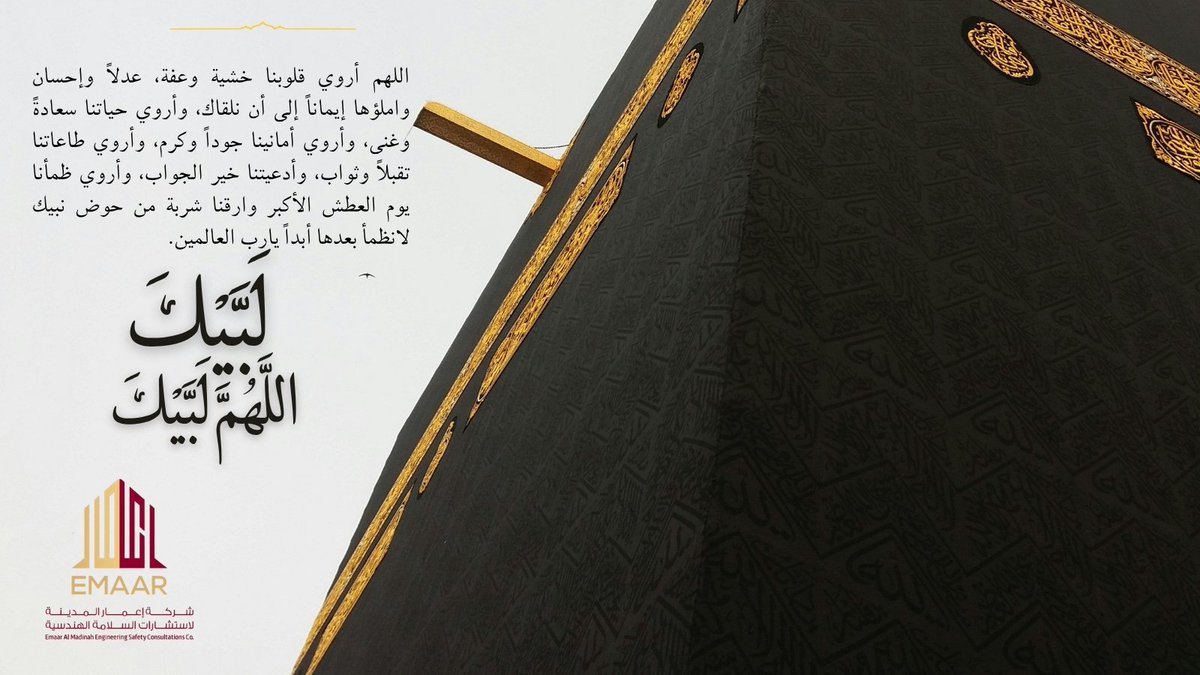 اللهم أروي قلوبنا خشية وعفة، عدلاً وإحسان
واملؤها إيماناً إلى أن نلقاك، وأروي حياتنا سعادةً
وغنى، وأروي أمانينا جوداً وكرم، وأروي طاعاتنا
تقبلاً وثواب، وأدعيتنا خير الجواب، وأروي ظمأنا
يوم العطش الأكبر وارقنا شربة من حوض نبيك
لانظمأ بعدها أبداً يارب العالمين.
لَبَّيْكَ
اللَّهُمَّ لَبَّيْكَ
EMAAR
شركة إعمار المدينة
لاستشارات السلامة الهندسية
Emaar Al Madinah Engineering Safety Consultations Co.